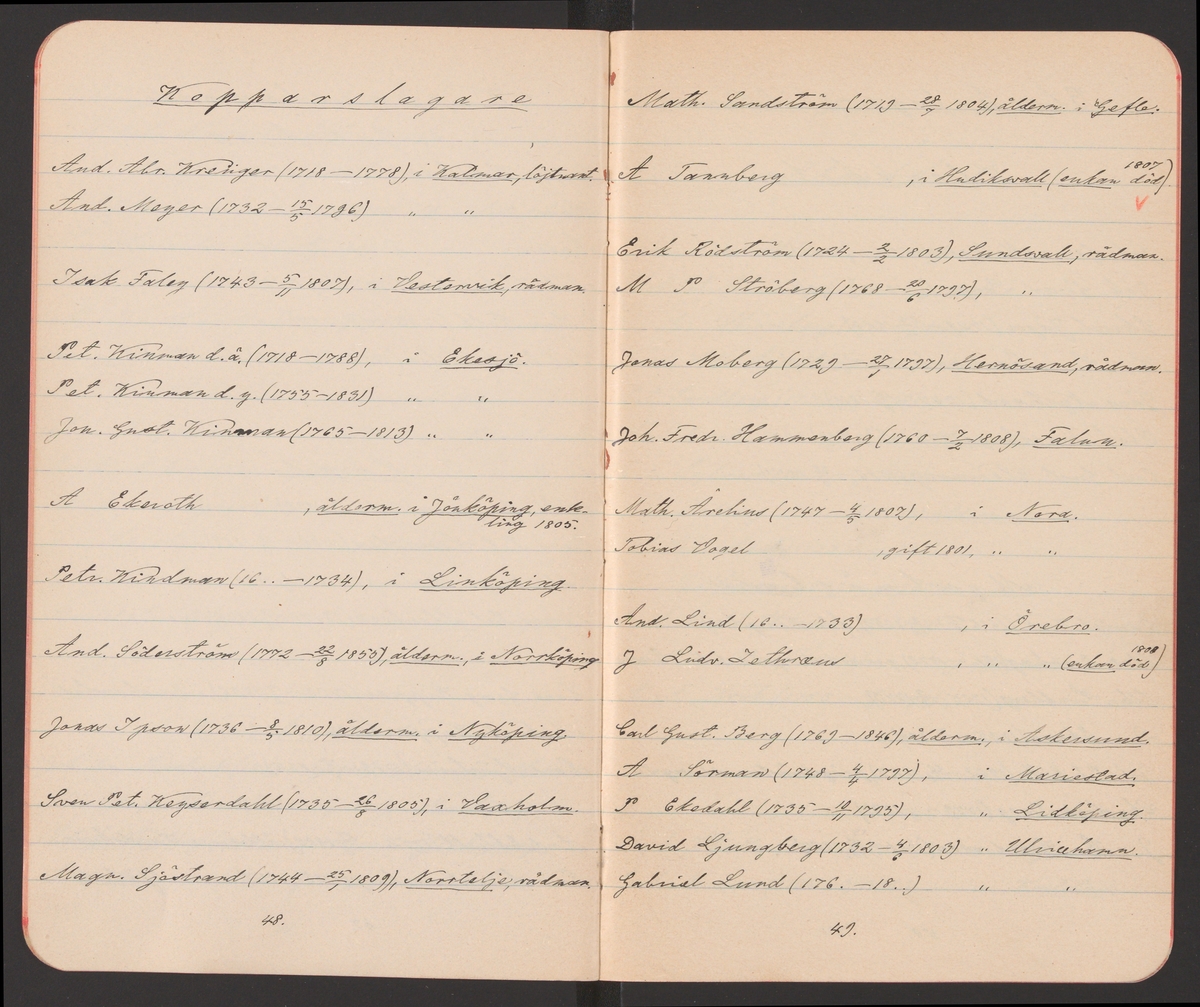 Kopparslagare
And. Abr. Kreüger (1718 — 1778), i Kalmar, löjtnant.
And. Meyer (1732 — 15/5 1796) " "
Isak Faley (1743 — 5/11 1807), i Vestervik, rådman.
Pet. Kinman d.ä. (1718 — 1788), i Eksjö.
Pet. Kinman d.y. (1755 — 1831) " "
Jon. Gust. Kinman (1765 — 1813) " "
A Ekeroth , ålderm. i Jönköping, enk-
ling 1805.
Petr. Kindman (16.. — 1734), i Linköping
And. Söderström (1772 — 22/8 1855), ålderm., i Norrköping
Jonas Ipson (1736 — 8/5 1810), ålderm. i Nyköping.
Sven Pet. Keyserdahl (1735 — 26/8 1805), i Vaxholm.
Magn. Sjöstrand (1744 — 25/1 1809), Norrtelje, rådman.
48.
Math. Sandström (1719 — 28/7 1804), ålderm. i Gefle.
1807
A Tannberg , i Hudiksvall (enkan död)
Erik Rödström (1724 — 2/2 1803), Sundsvall, rådman.
M P Ströberg (1768 — 20/6 1797), "
Jonas Moberg (1729 — 27/1 1797), Hernösand, rådman.
Joh. Fredr. Hammenberg (1760 — 7/2 1808), Falun.
Math. Årelius (1747 — 4/5 1807), i Nora.
Tobias Vogel , gift 1801, " "
And. Lind (16.. — 1733) , i Örebro.
1808
J Ludv. Tethræus , " " (enkan död)
Carl Gust. Berg (1769 — 1846), ålderm., i Askersund.
A Sörman (1748 — 4/4 1797), i Mariestad.
P Ekedahl (1735 — 19/11 1795), " Lidköping.
David Ljungberg (1732 — 4/6 1803) " Ulricehamn.
Gabriel Lund (176. — 18..) " "
49.